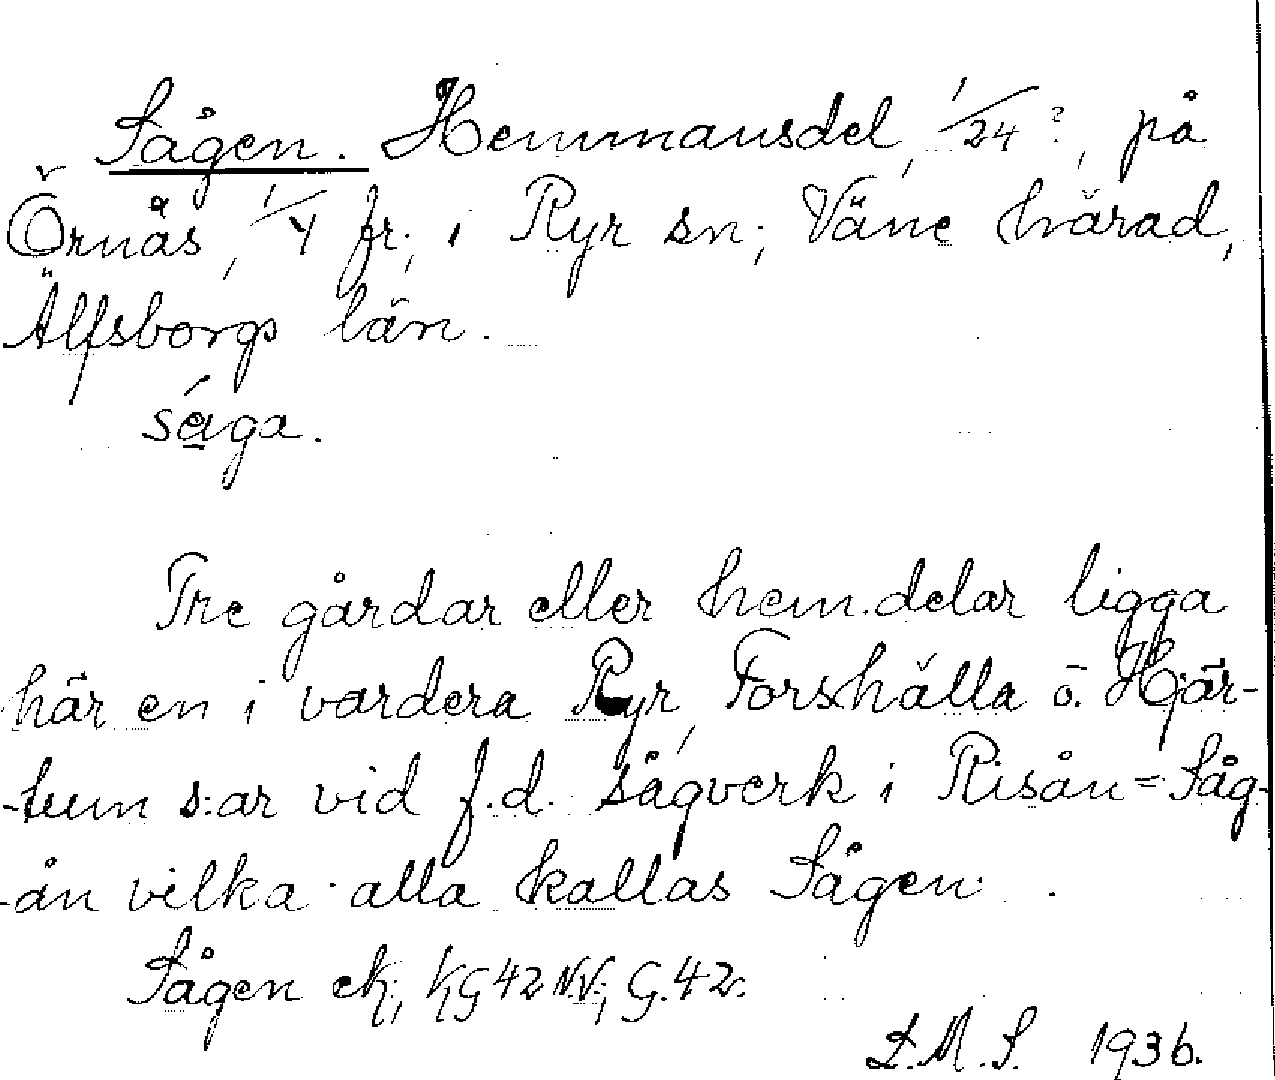 Sågen. Hemmansdel, 1/24?, på
Örnäs, 1/4 fr., i Ryr sn; Väne härad,
Älfsborgs län.
såga.
Tre gårdar eller hem.delar ligga
här en i vardera Ryr, Forshälla o. Hjär-
-tum s:ar vid f.d. sågverk i Risån = Såg-
-ån vilka alla kallas Sågen.
Sågen ek, KG 42 N.V.; G.42.
L.M.S. 1936.